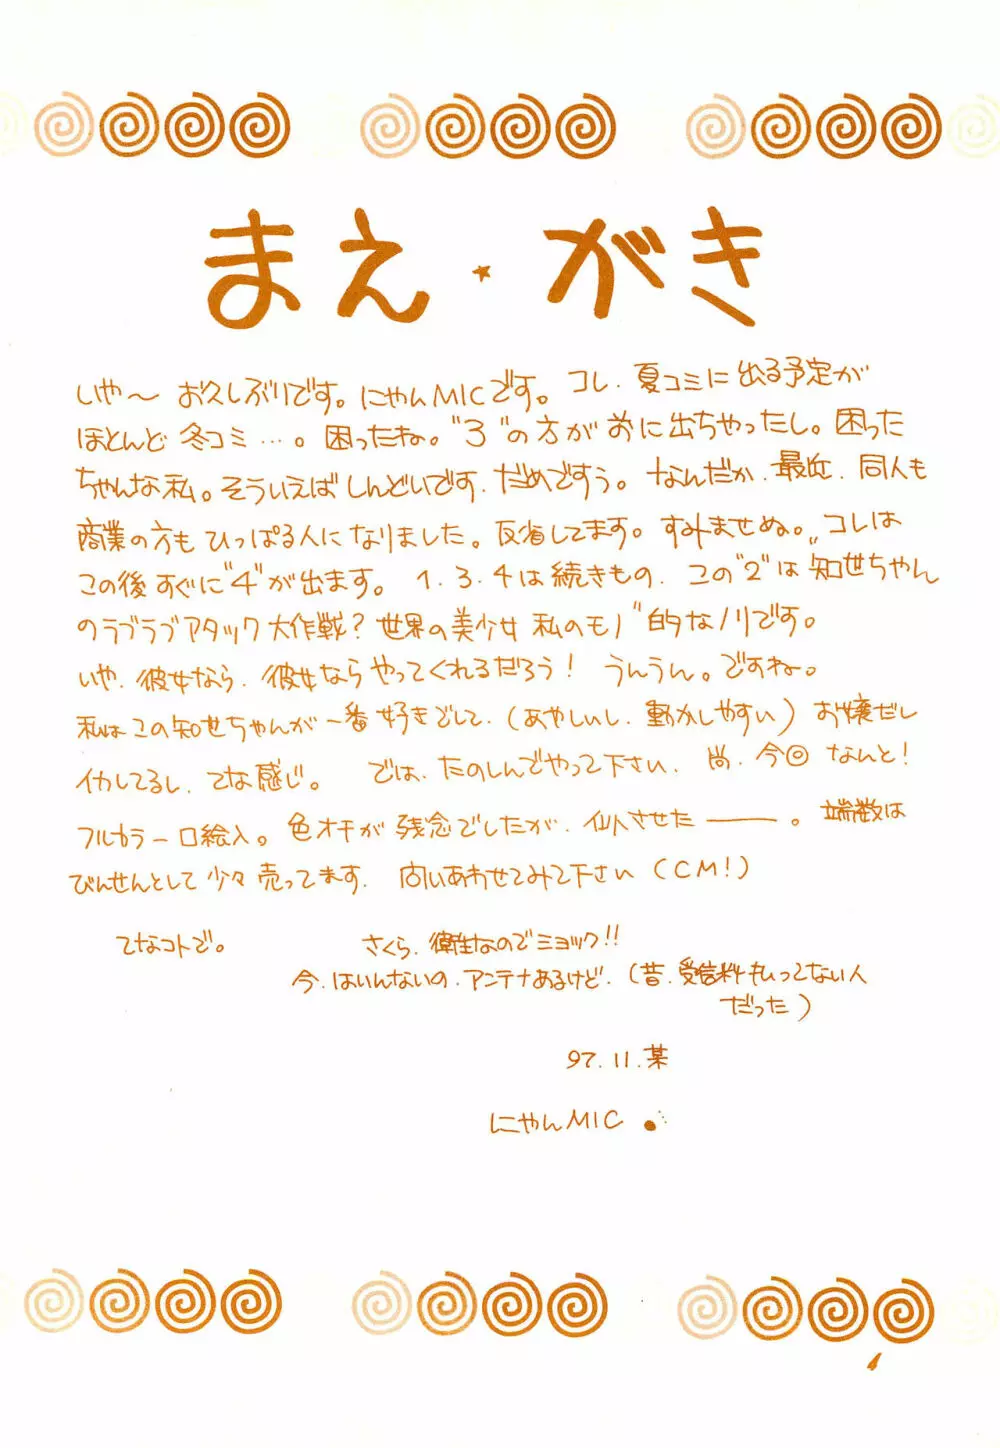 まえ・がき
いや〜 お久しぶりです。にゃんMICです。コレ、夏コミに出る予定が
ほとんど 冬コミ…。困ったね。"3"の方が おに出ちゃったし。困った
ちゃんな私。そういえば しんどいです、だめですぅ。なんだか、最近、同人も
商業の方も ひっぱる人に なりました。反省してます。すみませぬ。"コレは
この後すぐに"4"が出ます。1.3.4は続きもの、この"2"は 知世ちゃん
のラブラブアタック大作戦? 世界の美少女 私のモノ"的なノリです。
いや、彼女なら、彼女なら やってくれるだろう! うんうん。ですね。
私はこの知世ちゃんが 一番 好きでして、(あやしいし、動かしやすい) お嬢だし
イカしてるし、てな感じ。 では、たのしんでやって下さい、尚、今回 なんと!
フルカラー口絵入。色オチが 残念でしたが、仙人させた――。端数は
びんせんとして 少々 売ってます、問いあわせてみて下さい (CM!)
てなコトで。
さくら、衛生なのでミョック!!
今、はいんないの、アンテナあるけど、(昔、受信料もいってない人
だった)
97.11.某
にゃんMIC
1